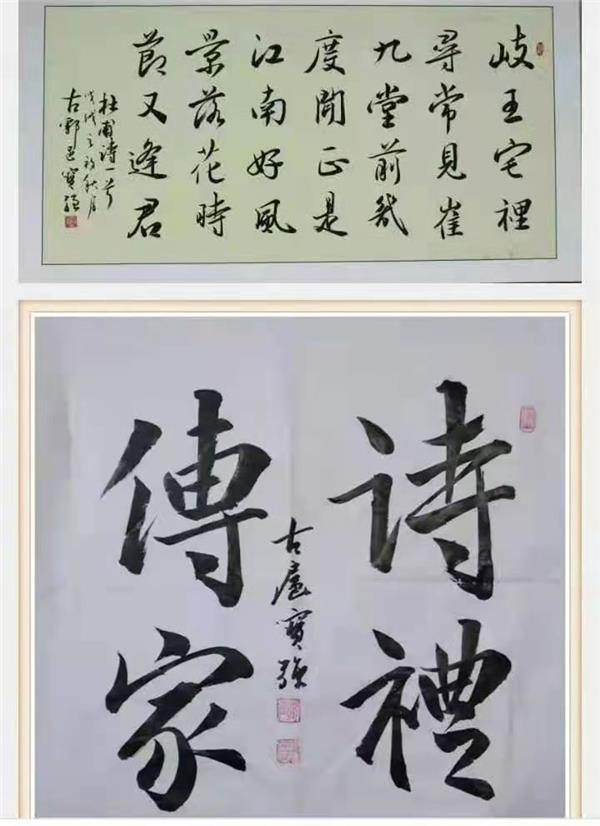 岐王宅裡
尋常見崔
九堂前幾
度聞正是
江南好風
景落花時
節又逢君
杜甫詩一首
戊戌之初秋月
古鄠邑寶强
詩禮
傳家
古扈寶强